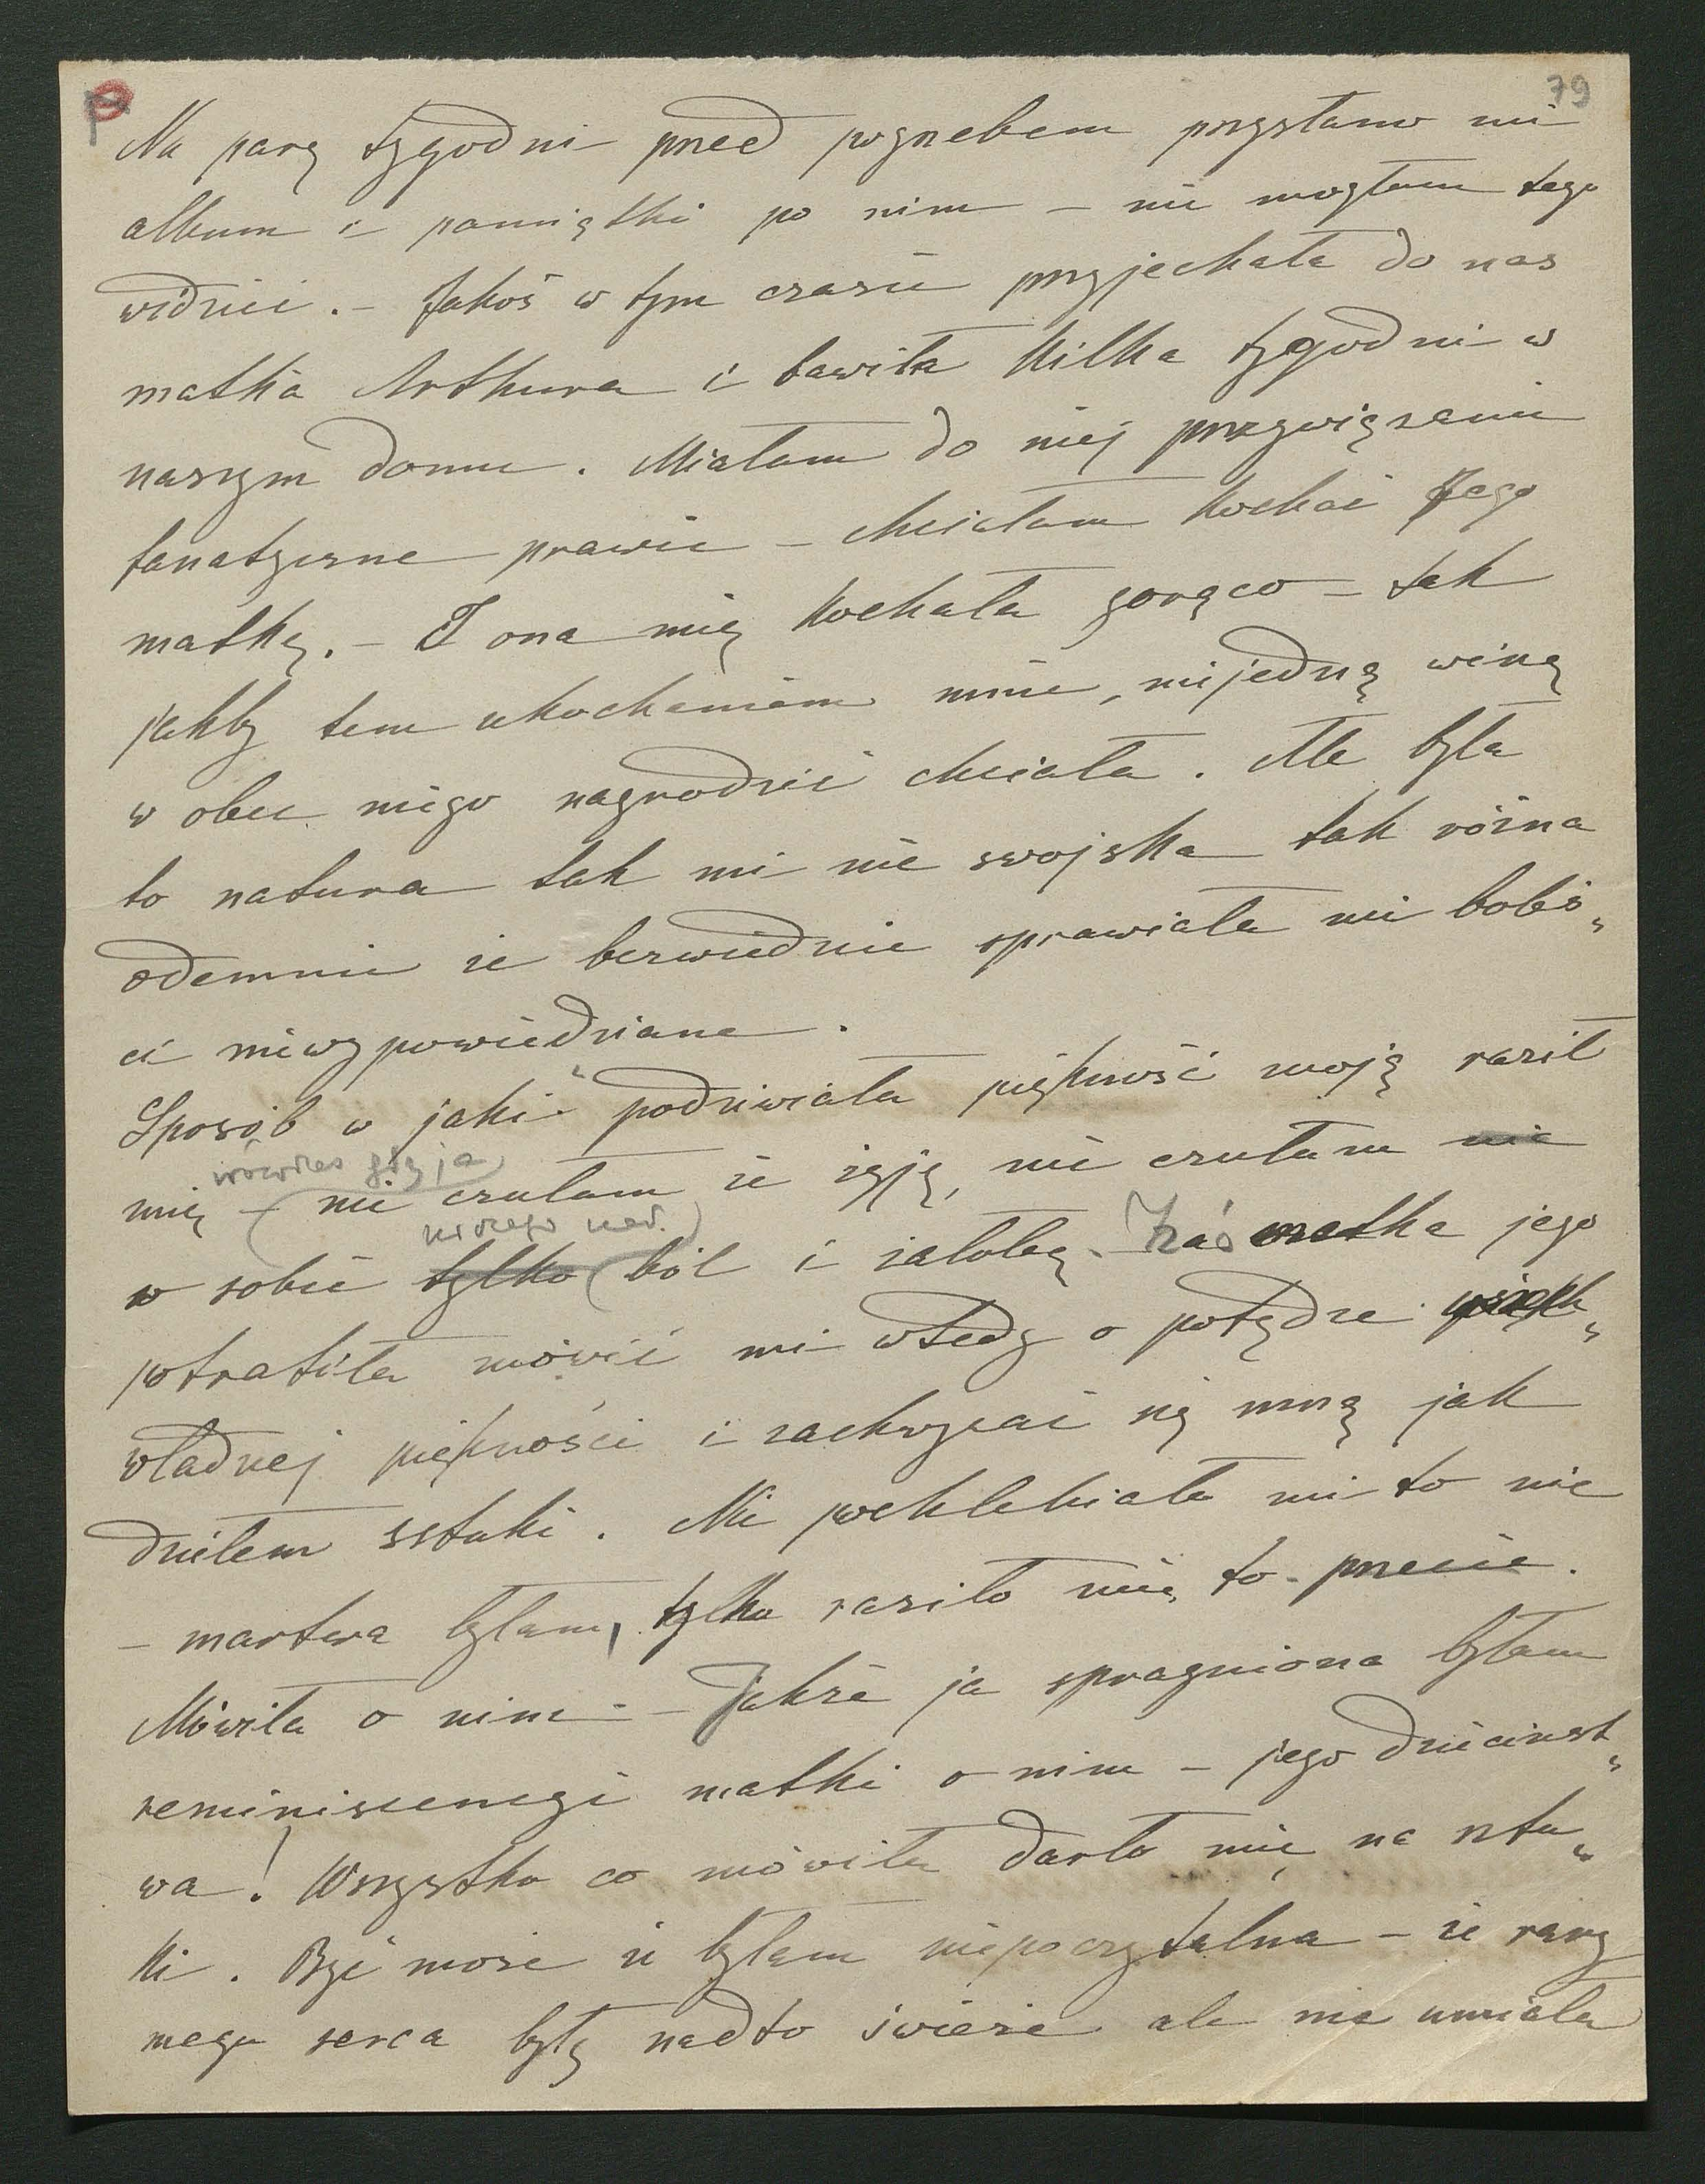 79
Na parę tygodni przed pogrzebem przysłano mi
album i pamiątki po nim – nie mogłam tego
widzieć. – Jakoś w tym czasie przyjechała do nas
matka Arthura i bawiła kilka tygodni w
naszym domu. Miałam do niej przywiązanie
fanatyczne prawie – chciałam kochać Jego
matkę. – I ona mię kochała gorąco – tak
jakby tem ukochaniem mnie, niejedną winę
w obec niego nagrodzić chciała. Ale była
to natura tak mi nie swojska tak różna
odemnie że bezwiednie sprawiała mi boleś„
ci niewypowiedziane.
Sposób w jaki podziwiała piękność moją raził
wówczas
mię – nie czułam że żyję, nie czułam nic
w sobie tylko ból i żałobę. Zaś matka jego
potrafiła mówić mi wtedy o potędze
władnej piękności i zachwycać się mną jak
dziełem sztuki. Nie pochlebiało mi to nie
– martwa byłam, tylko raziło mię to przecie.
Mówiła o nim – Jakże ja spragniona byłam
reminiscencyi matki o nim – jego dziecińst„
wa! Wszystko co mówiła darło mię na sztu„
ki. Być może że byłam niepoczytalna – że rany
mego serca były nadto świeże ale nie umiała